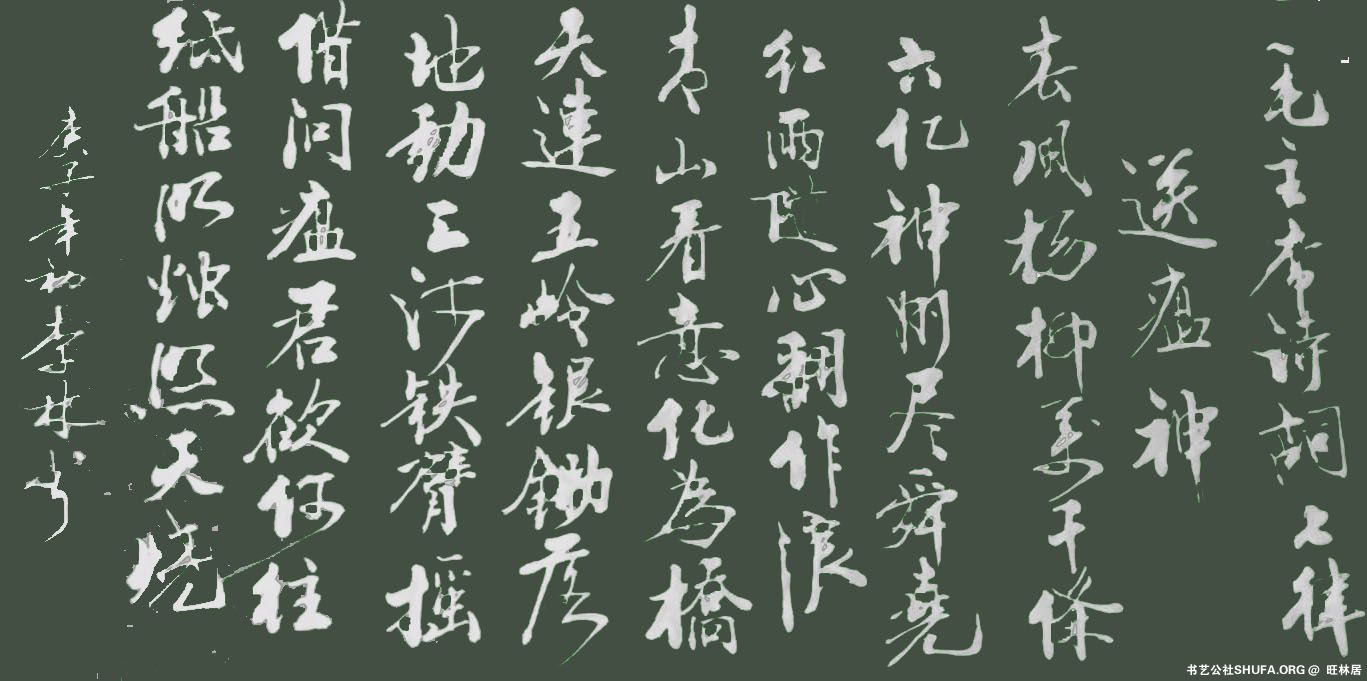 毛主席诗词七律
送瘟神
春风杨柳萬千條
六亿神州尽舜堯
红雨随心翻作浪
青山着意化為橋
天連五岭银锄落
地動三河铁臂摇
借问瘟君欲何往
纸船明烛照天烧
庚子年初李林书
书艺公社SHUFA.ORG @ 旺林居